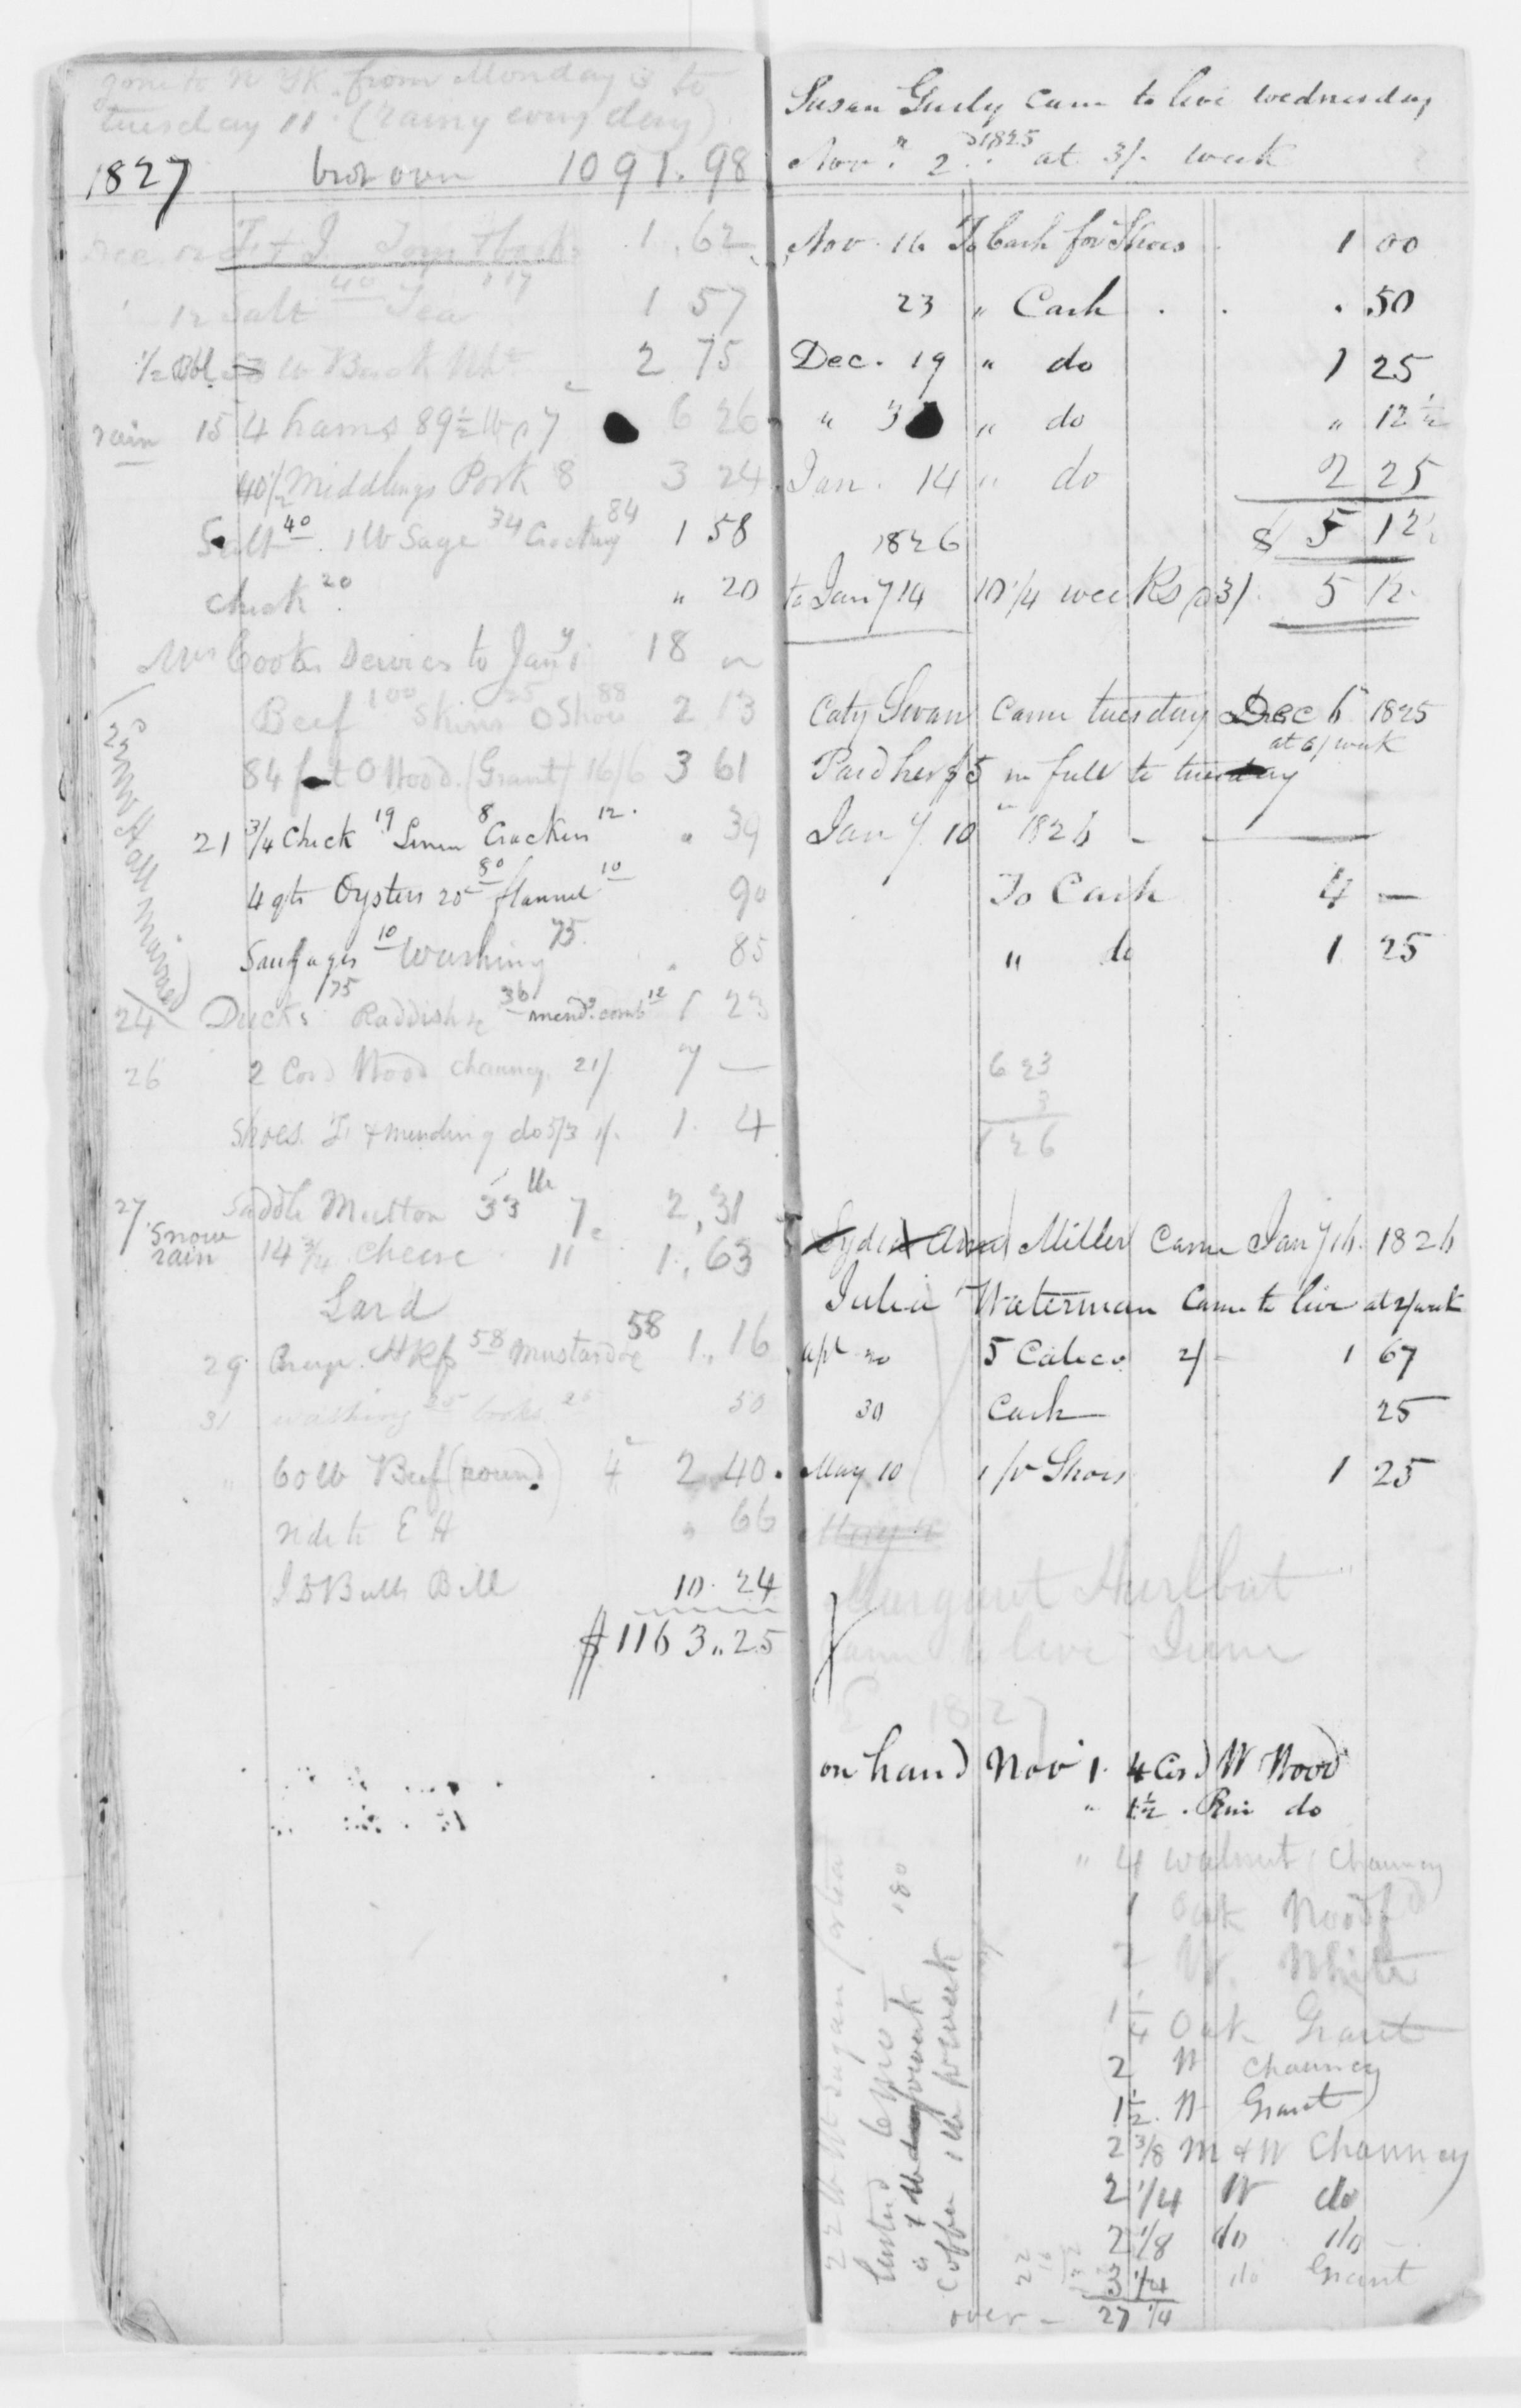 gone to N Yk. from Monday 3 to
tuesday 11. (rainy every day)
1827 brot over 1091.98
Dec. 12 F & J 1.62
12 Salt 40 Tea 117 1 57
1/2 Bbl Buck Wht 2 75
rain 15 4 hams 89 1/2 lb 7c 6 26
40 1/2 Middlings Pork 8 3 24
Salt 40. 1 lb Sage 34 Crockery 84 1 58
Check 20. " 20
Mrs Cooks Services to Jany 1 18
Beef 100 Skins 25 Shoes 88 2 13
84 feet O Wood. (Grant) 16/6 3 61
21 3/4 Check 19 Linen 8 Crackers 12. . 39
4 qts Oysters 20 80 flannel 10 90
Sausages 10 Washing 75. . 85
24 Ducks 75 Raddish &c 36 mendg comb 12 1 23
26 2 Cord Wood Chauncy. 21/ 7 —
Shoes. F. & mending do 5/3 1/. 1. 4
27 Saddle Mutton 33 lb 7c 2,31
snow
rain 14 3/4 Cheese 11 1.,63
Lard
29 Hkfs 58 Mustard &c 58 1.,16
31 washing 25 books 25 50
" 60 lb Beef (round) 4c 2 40.
ride to E H " 66
J B Bulls Bill 10. 24
$1163.,25
Susan Guily came to live wednesday
Novr 2d. 1825 at 3/. week
Nov. 16 To Cash for Shoes 1 00
23 " Cash . . . 50
Dec. 19 " do 1 25
" 3 " do " 12 1/2
Jan. 14 " do 2 25
1826 $ 5 12 1/2
to Jany 14 10 1/4 weeks @ 3/. 5 12.
Caty Swan came tuesday Dec 6 1825
at 6/ week
Paid her $5 in full to tuesday
Jany. 10 1826 - —
To Cash 4 —
" do 1 25
6 23
3
1 26
Lydia Ann Miller came Jany 16. 1826
Julia Waterman came to live at 2/ week
apl 20 5 Calico 2/ - 1 67
30 Cash 25
May 10 1 pr Shoes 1 25
Margaret Hurlbut
came to live June
1827
on hand Nov 1. 4 Cord W Wood
" 1 1/2 . Pine do
" 4 walnut (Chauncy)
1 Oak Woodfd
2 W. White
1 1/4 Oak Grant
2 W Chauncy
1 1/2. W Grant
2 3/8 M & W Chauncy
2 1/4 W do
2 1/8 do do
3 1/4 do Grant
over - 27 1/4
Coffee 1 lb pr week